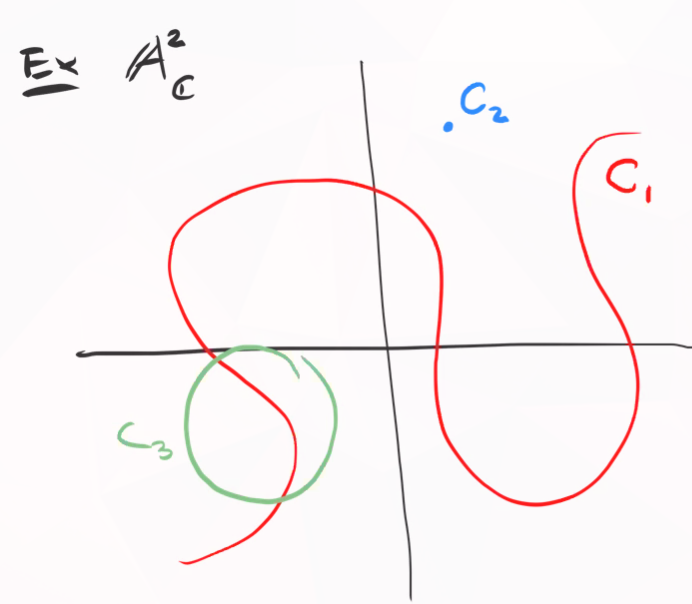 Ex A²_ℂ
C₂
C₁
C₃